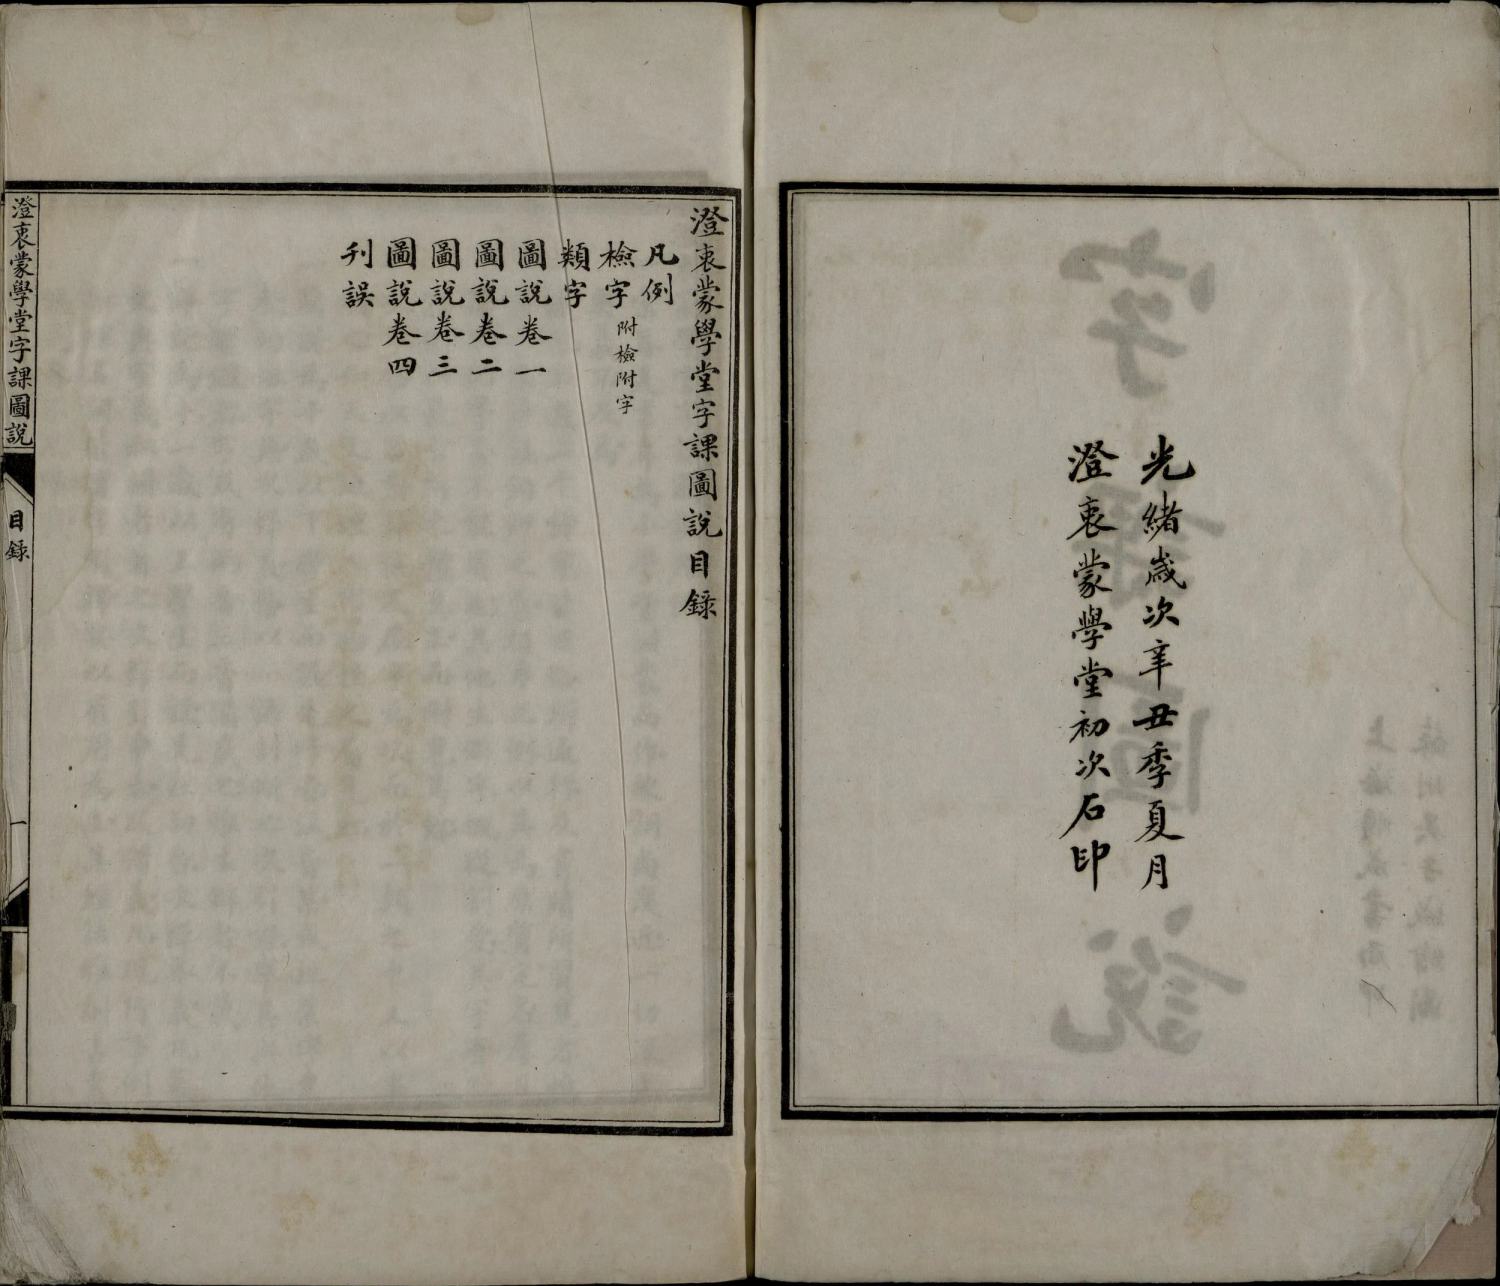 光緒歲次辛丑季夏月
澄衷蒙學堂初次石印
澄衷蒙學堂字課圖說目錄
凡例
檢字 附檢附字
類字
圖說卷一
圖說卷二
圖說卷三
圖說卷四
刋誤
澄衷蒙學堂字課圖說
目錄
一